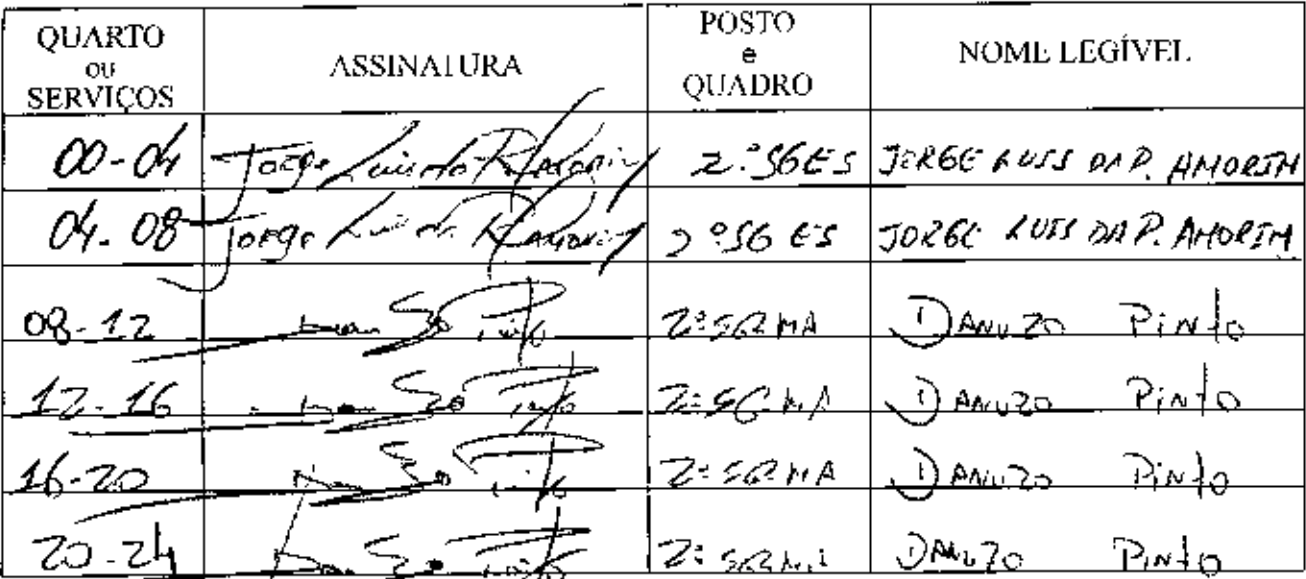 QUARTO OU SERVIÇOS ASSINATURA POSTO e QUADRO NOME LEGÍVEL
00-04 Jorge Luis da P. Amorim 2.º SG ES JORGE LUIS DA P. AMORIM
04-08 Jorge Luis da P. Amorim 2º SG ES JORGE LUIS DA P. AMORIM
08-12 Pinto 2º SG MA DANUZO PINTO
12-16 Pinto 2º SG MA DANUZO PINTO
16-20 Pinto 2º SG MA DANUZO PINTO
20-24 Pinto 2º SG MA DANUZO PINTO